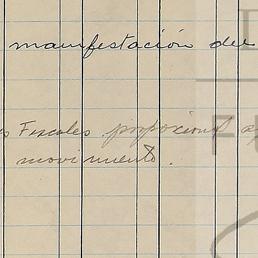 manifestación del
s Fiscales proporciona
movimiento.